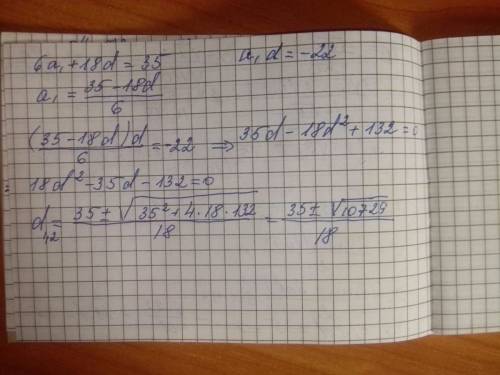 6a₁ + 18d = 35    a₁d = -22
a₁ = (35 - 18d)/6
(35 - 18d)d/6 = -22 ⇒ 35d - 18d² + 132 = 0
18d² - 35d - 132 = 0
d₁,₂ = (35 ± √(35² + 4·18·132))/18 = (35 ± √10729)/18